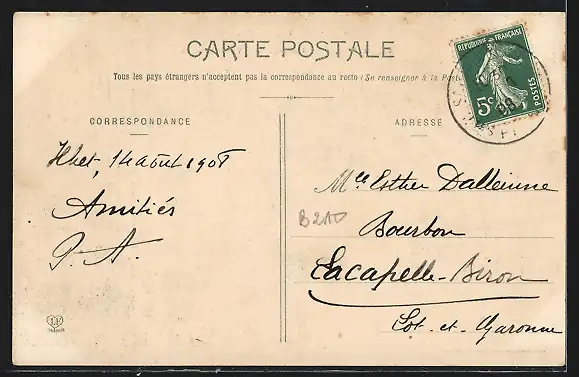 CARTE POSTALE
Tous les pays étrangers n'acceptent pas la correspondance au recto (Se renseigner à la Poste
RÉPUBLIQUE FRANÇAISE
5c
POSTES
CORRESPONDANCE
ADRESSE
14 août 1908
Amitiés
P. A.
Mlle Esther Dalleinne
B210
Bourbon
Lacapelle-Biron
Lot-et-Garonne